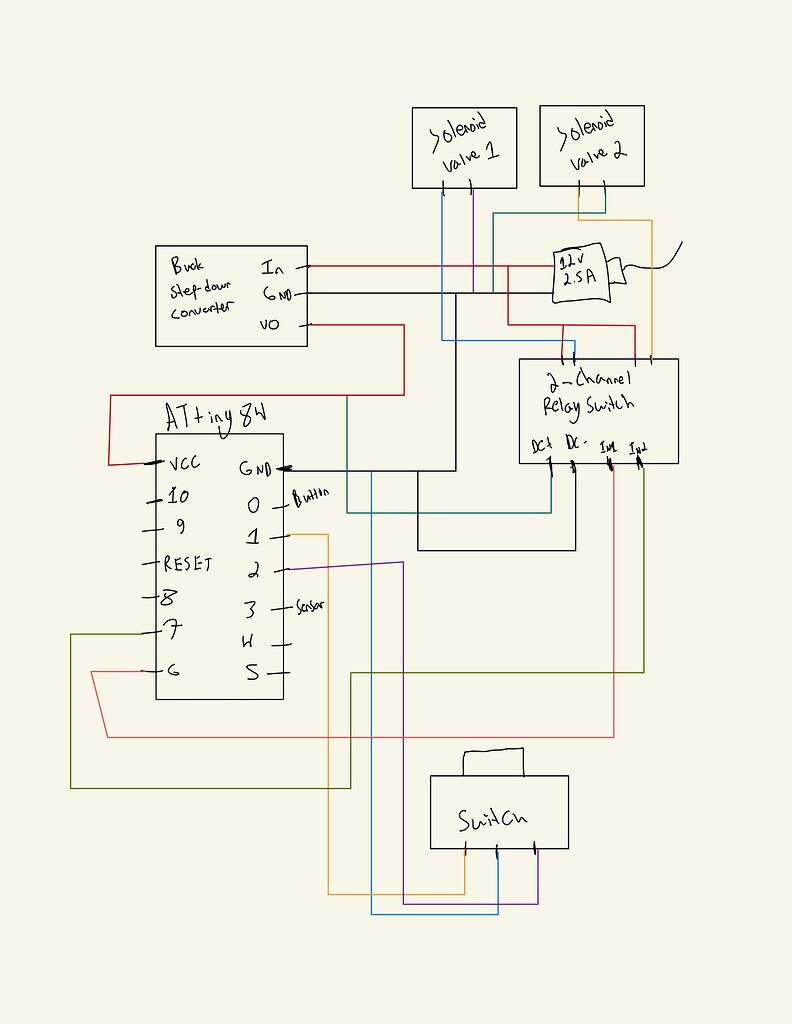 Solenoid
valve 1
Solenoid
valve 2
Buck
step-down
converter
In
GND
VO
12V
2.5A
2-Channel
Relay Switch
DC+
DC-
IN1
IN2
ATtiny 84
VCC
10
9
RESET
8
7
6
GND
0
Button
1
2
3
Sensor
4
5
Switch